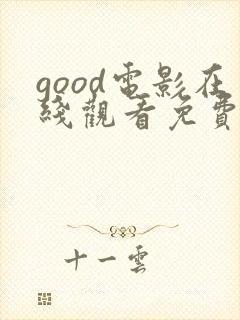 good電影在
綫觀看免費
十一雲